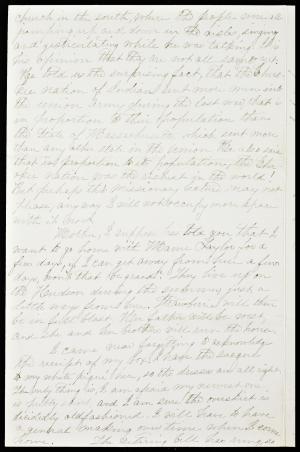 church in the south, where the people were all
jumping up and down in the aisles, singing
and gesticulating while he was talking. It is
his opinion that they are not all savages yet.
He told us the surprising fact, that the Chero-
kee nation of Indians sent more men into
the union army during the last war that is
in proportion to their population than
the State of Massachusetts, which sent more
than any other state in the union. He also said
that in proportion to its population, the Cher-
okee nation was the richest in the world!
But perhaps this missionary letter may not
please, any way I will not occupy more space
with it now.
Mother, I suppose has told you that I
want to go home with Mame Taylor for a
few days, if I can get away from here a few
days, won't that be grand! They live up on
the Hudson during the summer, just a
little way from here. Strawberries will then
be in full blast. Her father will be away,
and she and her brother will run the house.
I came near forgetting to acknowledge
the receipt of my box. I have the
to my white pique here, so the dresses are all right.
The only thing is, I am afraid my newest one
is pretty short and I am sure the overskirt is
decidedly oldfashioned. I will have to have
a general making over time when I come
home. The retiring bell has rung, so